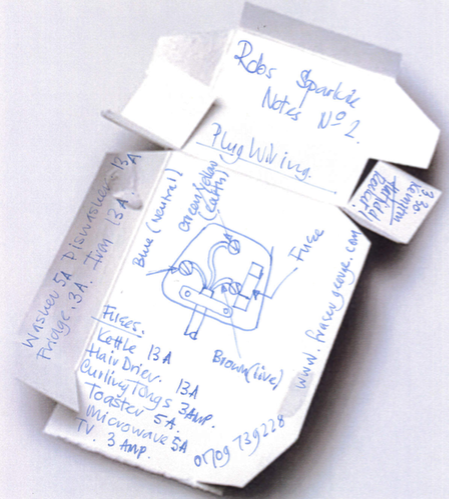 Robs Sparkie
Notes Nº 2.
Plug Wiring.
3.30
Kempton
Blue (neutral)
Green/Yellow
(Earth)
Fuse
Brown (live)
Washer 5A Diswasher 13A
Fridge. 3A. Iron 13A
Fuses.
Kettle 13A
Hair Drier. 13A
Curling Tongs 3 Amp.
Toaster 5A.
Microwave 5A
TV. 3 Amp.
01709 739228